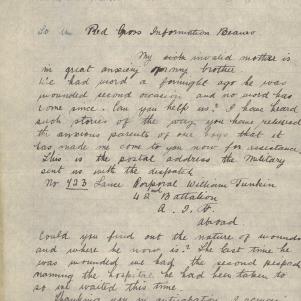 To the Red Cross Information Bureau
My sick invalid mother is
in great anxiety for my brother
We had word a fortnight ago he was
wounded second occasion and no word has
come since. Can you help us? I have heard
such stories of the way you have relieved
the anxious parents of our boys that it
has made me come to you now for assistance.
This is the postal address the Military
sent us with the despatch
No 423 Lance Corporal William
42nd Battalion
A. I. F.
abroad
Could you find out the nature of wounds
and where he now is? The last time he
was wounded we had the second
naming the hospital he had been taken to
so we waited this time.
Thanking you in anticipation I remain